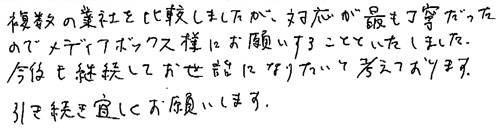 複数の業社を比較しましたが、対応が最も丁寧だった
のでメディアボックス様にお願いすることといたしました。
今後も継続してお世話になりたいと考えております。
引き続き宜しくお願いします。